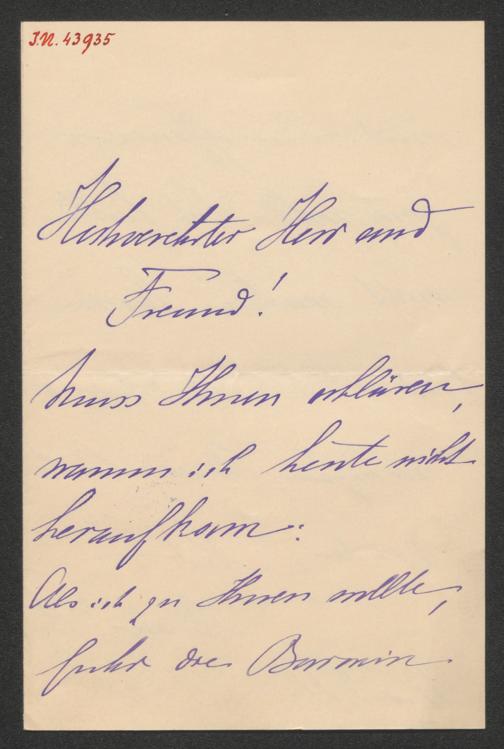 J.N. 43935
Hochverehrter Herr und
Freund!
Muss Ihnen erklären,
warum ich heute nicht
heraufkam:
Als ich zu Ihnen wollte,
fuhr die Baronin